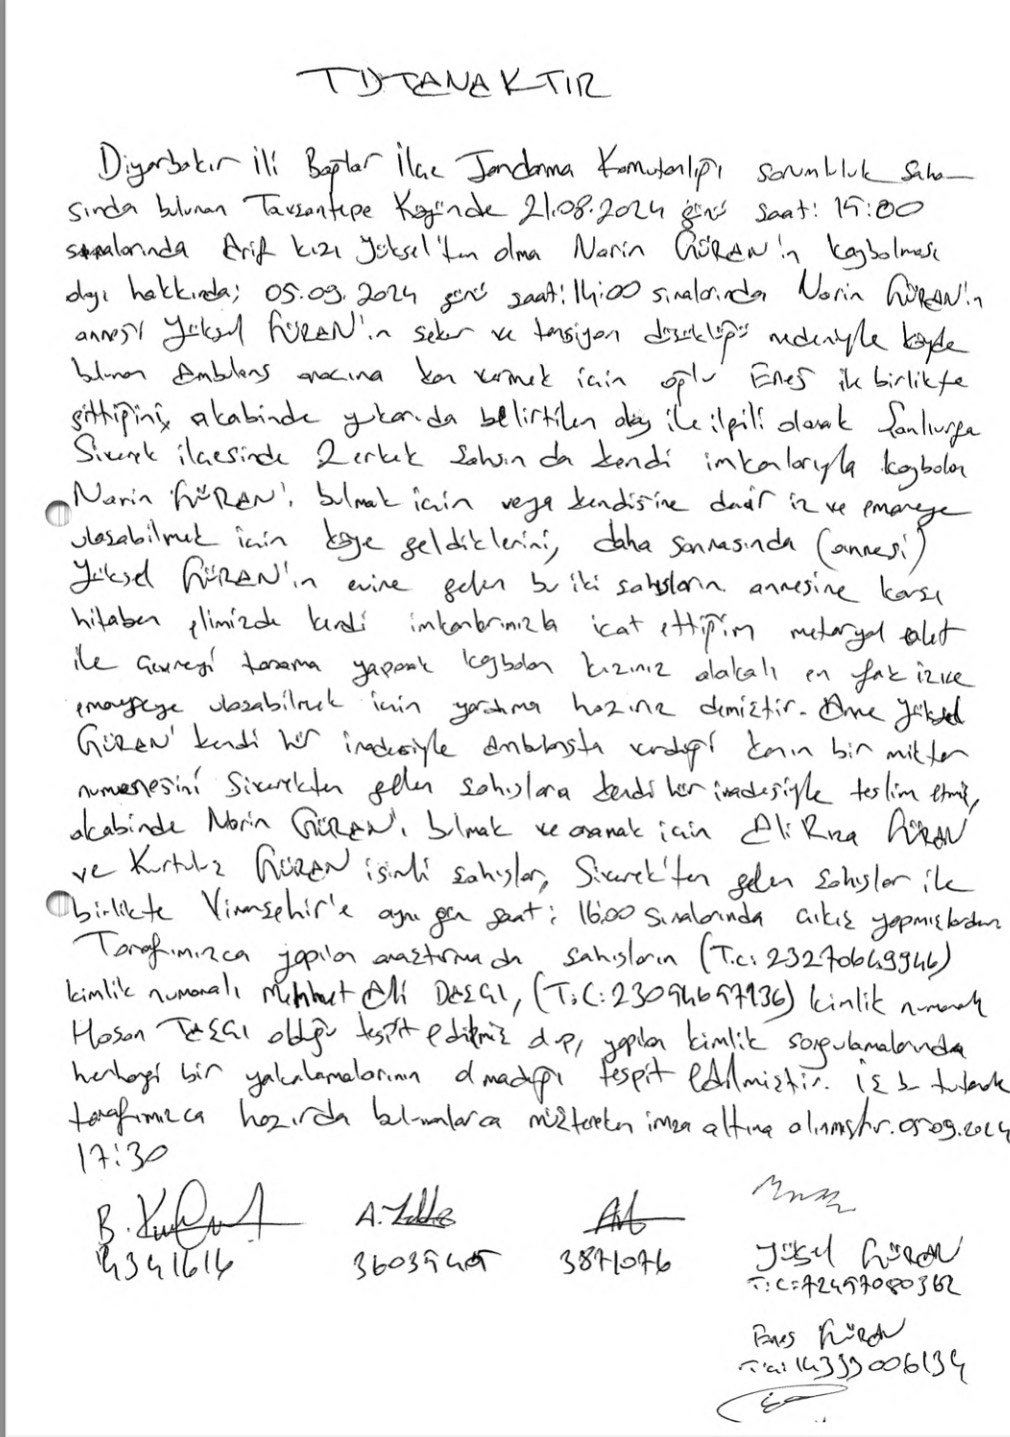 TUTANAKTIR
Diyarbakır İli Bağlar İlçe Jandarma Komutanlığı sorumluluk saha-
sında bulunan Tavşantepe Köyünde 21.08.2024 günü saat: 15:00
sıralarında Arif kızı Yüksel'ten olma Narin GÜRAN'ın kaybolması
olayı hakkında; 05.09.2024 günü saat: 14:00 sıralarında Narin GÜRAN'ın
annesi Yüksel GÜRAN'ın şeker ve tansiyon düşüklüğü nedeniyle köyde
bulunan Ambulans aracına kan vermek için oğlu Enes ile birlikte
gittiğini, akabinde yukarıda belirtilen olay ile ilgili olarak Şanlıurfa
Siverek ilçesinde 2 erkek şahsın da kendi imkanlarıyla kaybolan
Narin GÜRAN'ı bulmak için veya kendisine dair iz ve emareye
ulaşabilmek için köye geldiklerini, daha sonrasında (annesi)
Yüksel GÜRAN'ın evine gelen bu iki şahısların annesine karşı
hitaben elimizde kendi imkanlarımızla icat ettiğim metaryal alet
ile çevreyi tarama yaparak kaybolan kızınız alakalı en ufak iz ve
emareye ulaşabilmek için yardıma hazırız demiştir. Anne Yüksel
GÜRAN' kendi hür iradesiyle Ambulansta verdiği kanın bir miktar
numunesini Siverekten gelen şahıslara kendi hür iradesiyle teslim etmiş,
akabinde Narin GÜRAN'ı bulmak ve aramak için Ali Rıza GÜRAN
ve Kurtuluş GÜRAN isimli şahıslar, Siverek'ten gelen şahıslar ile
birlikte Viranşehir'e aynı gün saat: 16:00 sıralarında çıkış yapmışlardır.
Tarafımızca yapılan araştırmada şahısların (T.C: 23270649946)
kimlik numaralı Mehmet Ali DAŞÇI, (T.C: 23094697936) kimlik numaralı
Hasan TAŞÇI olduğu tespit edilmiş olup, yapılan kimlik sorgulamalarında
herhangi bir yakalamalarının olmadığı tespit edilmiştir. İş bu tutanak
tarafımızca hazırda bulunanlarca müştereken imza altına alınmıştır. 05.09.2024
17:30
B.
A.
4341614
3871076
Yüksel GÜRAN
T.C: 72497080362
Enes GÜRAN
T.C: 14393006134